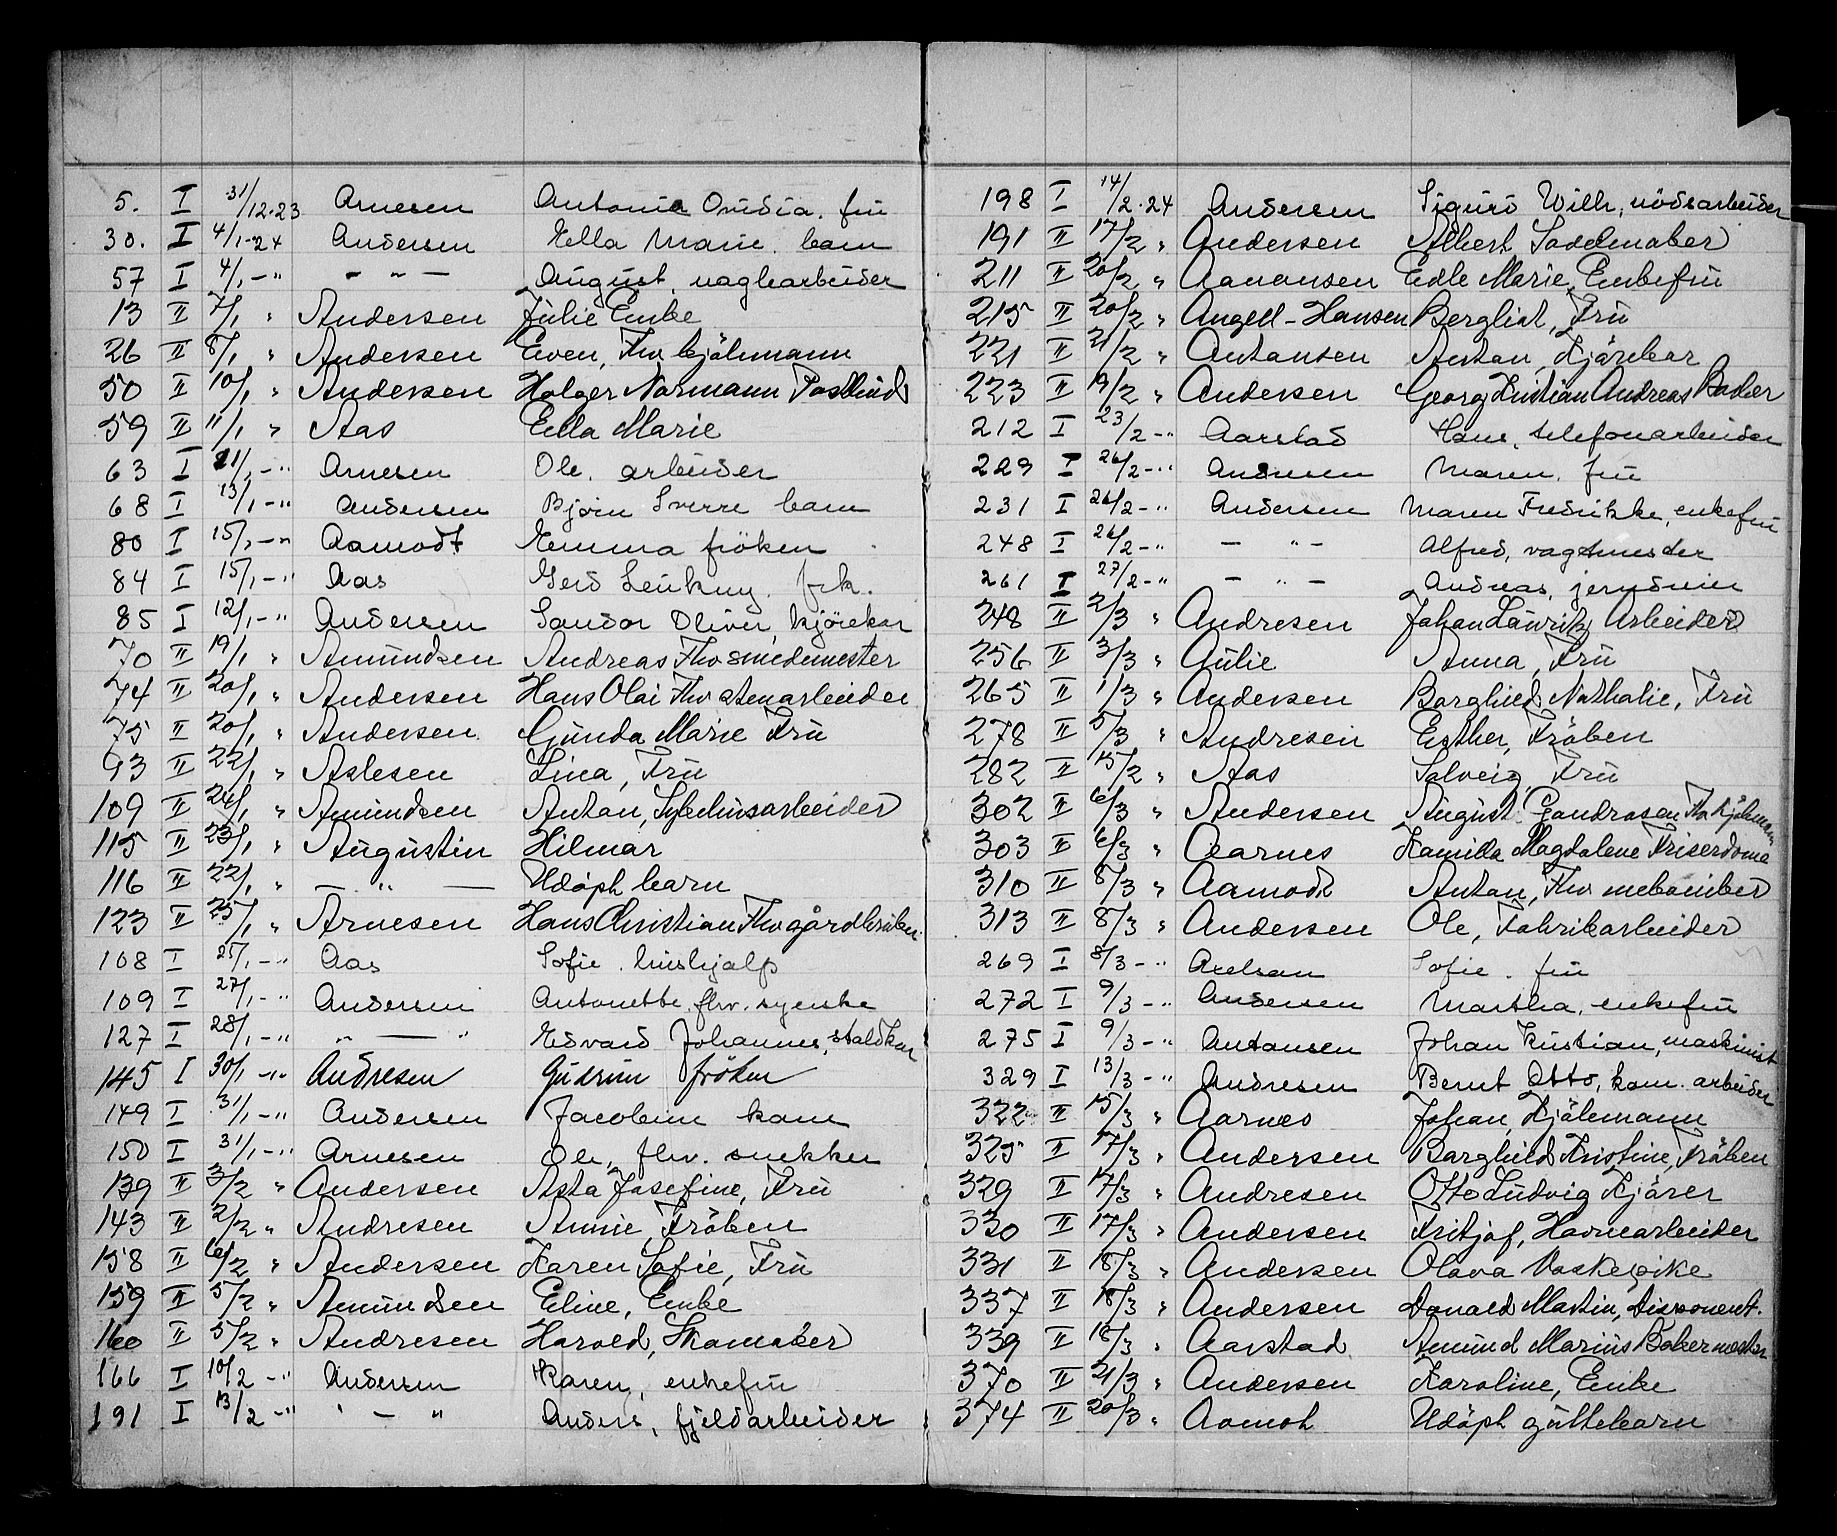 5. I 31/12-23 Arnesen Antonie Ovidia. fru
30. I 4/1-24 Andersen Hella Marie. barn
57 I 4/1-" - " - August, vagtarbeider
13 II 7/1 " Andersen Julie Enke
26 II 8/1 " Andersen Even, Fhv kjøkmann
50 II 10/1 " Andersen Holger Normann Postbud
59 II 11/1 " Aas Ella Marie
63 I 11/1-" Arnesen Ole, arbeider
68 I 13/1-" Andersen Bjørn Sverre barn
80 I 15/1-" Aamodt Emma fröken
84 I 15/1-" Aas Gerd frk.
85 I 12/1-" Andersen Sandor Oliver, kjörekar
70 II 19/1 " Amundsen Andreas Fhv smedemester
74 II 20/1 " Andersen Hans Olai Fhv stenarbeider
75 II 20/1 " Andersen Gunda Marie Fru
93 II 22/1 " Aslesen Lina, Fru
109 II 24/1 " Amundsen Anton, arbeider
115 II 23/1 " Augustin Hilmar
116 II 22/1 " — " — Udöpt barn
123 II 25/1 " Arnesen Hans Christian Fhv gårdbruker
108 I 25/1-" Aas Sofie. hushjalp
109 I 27/1-" Andersen Antonette. fhv. syerske
127 I 28/1-" " — " Edvard Johannes, staldkar
145 I 30/1-" Andresen Gudrun fröken
149 I 31/1-" Andersen Jacobine barn
150 I 31/1-" Arnesen Ole, fhv. snekker
139 II 3/2 " Andersen Asta Josefine, Fru
143 II 2/2 " Andresen Annie, Fröken
158 II 6/2 " Andersen Karen Sofie, Fru
159 II 5/2 " Amundsen Eline, Enke
160 II 5/2 " Andresen Harald, Skomaker
166 I 10/2-" Andersen Karen, enkefru
191 I 13/2-" " - " Anders, fjeldarbeider
198 I 14/2-24 Andersen Sigurd Wilh, nödsarbeider
191 II 17/2 " Andersen Albert Sadelmaker
211 II 20/2 " Aanansen Edle Marie, Enkefru
215 II 20/2 " Angell-Hansen Bergliot, Fru
221 II 21/2 " Antonsen Anton, Kjörekar
223 II 19/2 " Andersen Georg Kristian Andreas Baker
212 I 23/2-" Aarstad Hans, telefonarbeider
229 I 26/2-" Andresen Maren. fru
231 I 26/2-" Andersen Maren Fredrikke, enkefru
248 I 26/2-" — " - Alfred, vagtmester
261 I 27/2-" — " - Andreas, jerndreier
248 II 2/3 " Andresen Johan Laurits Arbeider
256 II 3/3 " Aulie Anna, Fru
265 II 1/3 " Andersen Borghild Nathalie, Fru
278 II 5/3 " Andresen Esther, Fröken
282 II 15/2 " Aas Solveig, Fru
302 II 6/3 " Andersen August Fhv kjökmann
303 II 6/3 " Aarnes Kamilla Magdalene Friserdame
310 II 8/3 " Aamodt Anton, Fhv mekaniker
313 II 8/3 " Andersen Ole, Fabrikarbeider
269 I 8/3-" Axelsen Sofie. fru
272 I 9/3-" Andersen Martha. enkefru
275 I 9/3-" Antonsen Johan Kristian, maskinist
329 I 13/3-" Andresen Bernt Otto, kom. arbeider
322 II 15/3 " Aarnes Johan, Kjökmann
325 II 17/3 " Andersen Borghild Kristine, Fröken
329 II 17/3 " Andresen Otto Ludvig Kjörer
330 II 17/3 " Andersen Fritjof, Havnearbeider
331 II 18/3 " Andersen Olava Vaskepike
337 II 18/3 " Andersen Donald Martin, Disponent.
339 II 18/3 " Aarstad Amund Marius Bakermester
370 II 21/3 " Andersen Karoline, Enke
374 II 20/3 " Aamot Udöpt guttebarn